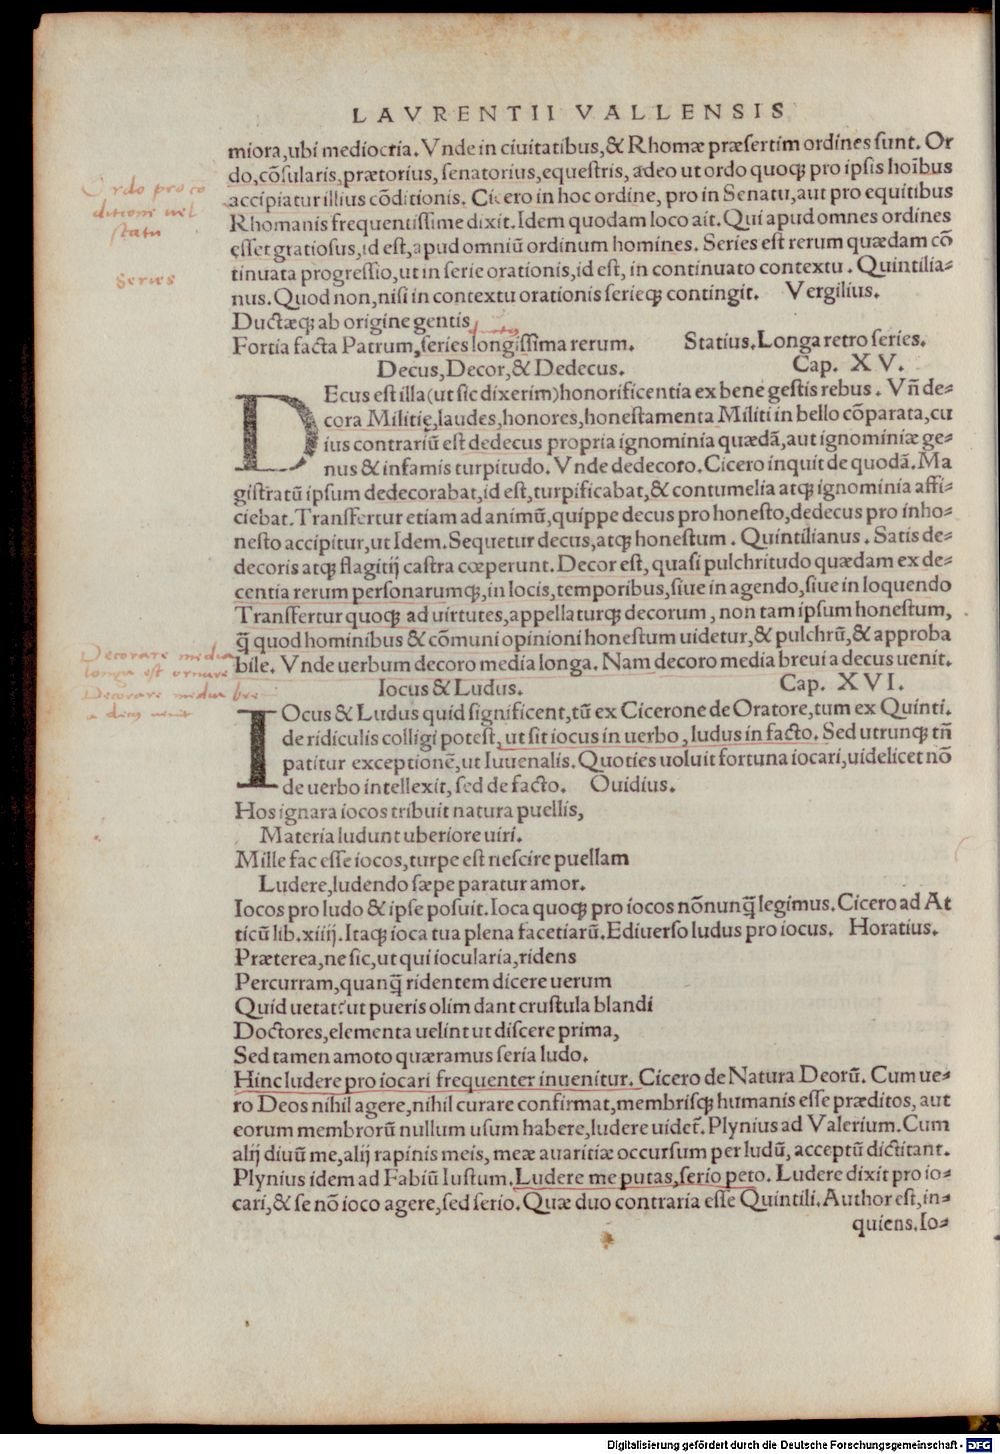 LAVRENTII VALLENSIS
miora,ubi mediocria. Vnde in ciuitatibus,& Rhomæ præsertim ordines sunt. Or
do,cõsularis,prætorius, senatorius,equestris, adeo ut ordo quoqꝫ pro ipsis hoĩbus
accipiatur illius cõditionis. Cicero in hoc ordine, pro in Senatu,aut pro equitibus
Rhomanis frequentissime dixit. Idem quodam loco ait. Qui apud omnes ordines
esset gratiosus,id est,apud omniũ ordinum homines. Series est rerum quædam cõ
tinuata progressio,ut in serie orationis,id est, in continuato contextu. Quintilia-
nus. Quod non,nisi in contextu orationis serieqꝫ contingit. Vergilius.
Ductæqꝫ ab origine gentis
Fortia facta Patrum,series longissima rerum. Statius. Longa retro series.
Decus, Decor, & Dedecus. Cap. XV.
DEcus est illa(ut sic dixerim)honorificentia ex bene gestis rebus. Vñ de-
cora Militię,laudes,honores,honestamenta Militi in bello cõparata,cu
ius contrariũ est dedecus propria ignominia quædã,aut ignominiæ ge-
nus & infamis turpitudo. Vnde dedecoro. Cicero inquit de quodã. Ma
gistratũ ipsum dedecorabat,id est,turpificabat,& contumelia atqꝫ ignominia affi-
ciebat. Transfertur etiam ad animũ,quippe decus pro honesto,dedecus pro inho-
nesto accipitur,ut Idem. Sequetur decus,atqꝫ honestum. Quintilianus. Satis de-
decoris atqꝫ flagitij castra cœperunt. Decor est, quasi pulchritudo quædam ex de-
centia rerum personarumqꝫ,in locis,temporibus,siue in agendo,siue in loquendo
Transfertur quoqꝫ ad uirtutes,appellaturqꝫ decorum, non tam ipsum honestum,
q̃ quod hominibus & cõmuni opinioni honestum uidetur,& pulchrũ,& approba
bile. Vnde uerbum decoro media longa. Nam decoro media breui a decus uenit.
Iocus & Ludus. Cap. XVI.
IOcus & Ludus quid significent,tũ ex Cicerone de Oratore,tum ex Quinti.
de ridiculis colligi potest,ut sit iocus in uerbo, ludus in facto. Sed utrunqꝫ tñ
patitur exceptionẽ,ut Iuuenalis. Quoties uoluit fortuna iocari,uidelicet nõ
de uerbo intellexit, sed de facto. Ouidius.
Hos ignara iocos tribuit natura puellis,
Materia ludunt uberiore uiri.
Mille fac esse iocos,turpe est nescire puellam
Ludere,ludendo sæpe paratur amor.
Iocos pro ludo & ipse posuit. Ioca quoqꝫ pro iocos nõnunq̃ legimus. Cicero ad At
ticũ lib.xiiij. Itaqꝫ ioca tua plena facetiarũ. Ediuerso ludus pro iocus. Horatius.
Præterea,ne sic,ut qui iocularia,ridens
Percurram,quanq̃ ridentem dicere uerum
Quid uetat?ut pueris olim dant crustula blandi
Doctores,elementa uelint ut discere prima,
Sed tamen amoto quæramus seria ludo.
Hinc ludere pro iocari frequenter inuenitur. Cicero de Natura Deorũ. Cum ue-
ro Deos nihil agere,nihil curare confirmat,membrisqꝫ humanis esse præditos, aut
eorum membrorũ nullum usum habere,ludere uidet̃. Plynius ad Valerium. Cum
alij diuũ me,alij rapinis meis, meæ auaritiæ occursum per ludũ, acceptũ dictitant.
Plynius idem ad Fabiũ Iustum. Ludere me putas,serio peto. Ludere dixit pro io-
cari,& se nõ ioco agere,sed serio. Quæ duo contraria esse Quintili. Author est,in-
quiens. Io-
Ordo pro cõ
ditione vel
statu
Series
Decorare media
longa est ornare
Decorare media bre
a decus venit
Digitalisierung gefördert durch die Deutsche Forschungsgemeinschaft - DFG